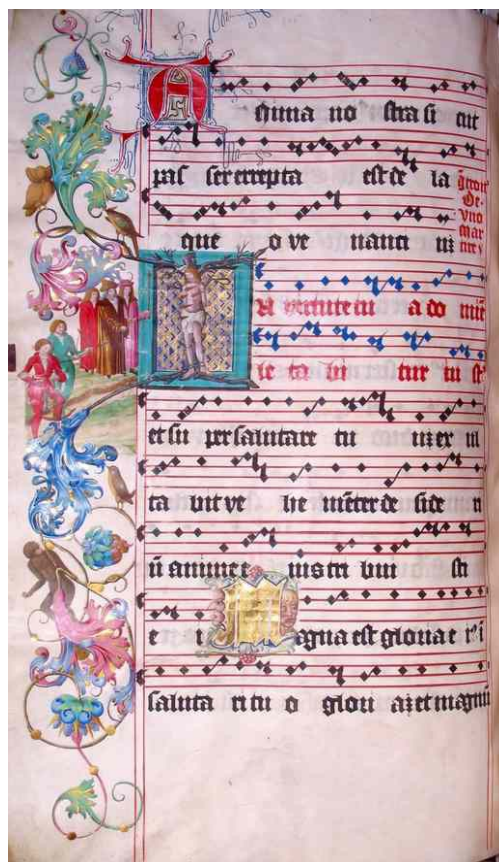 Anima no stra si cut
pas ser erepta est de la
que o ve nanti um
De
vno
mar
IN virtute tu a do mīe
le ta bi tur iu st
et su per salutare tu um ex ul
ta bit ve he mēter de side ri
ū anime e ius tri bui sti
e Magna est gloria e
saluta ri tu o glori a et magnū